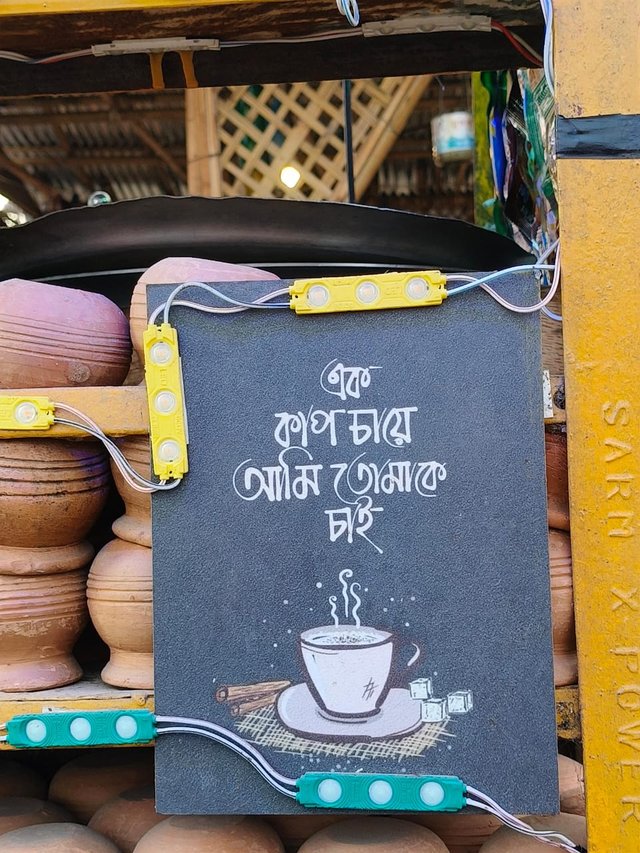 এক
কাপ চায়ে
আমি তোমাকে
চাই
SARM X-POWER